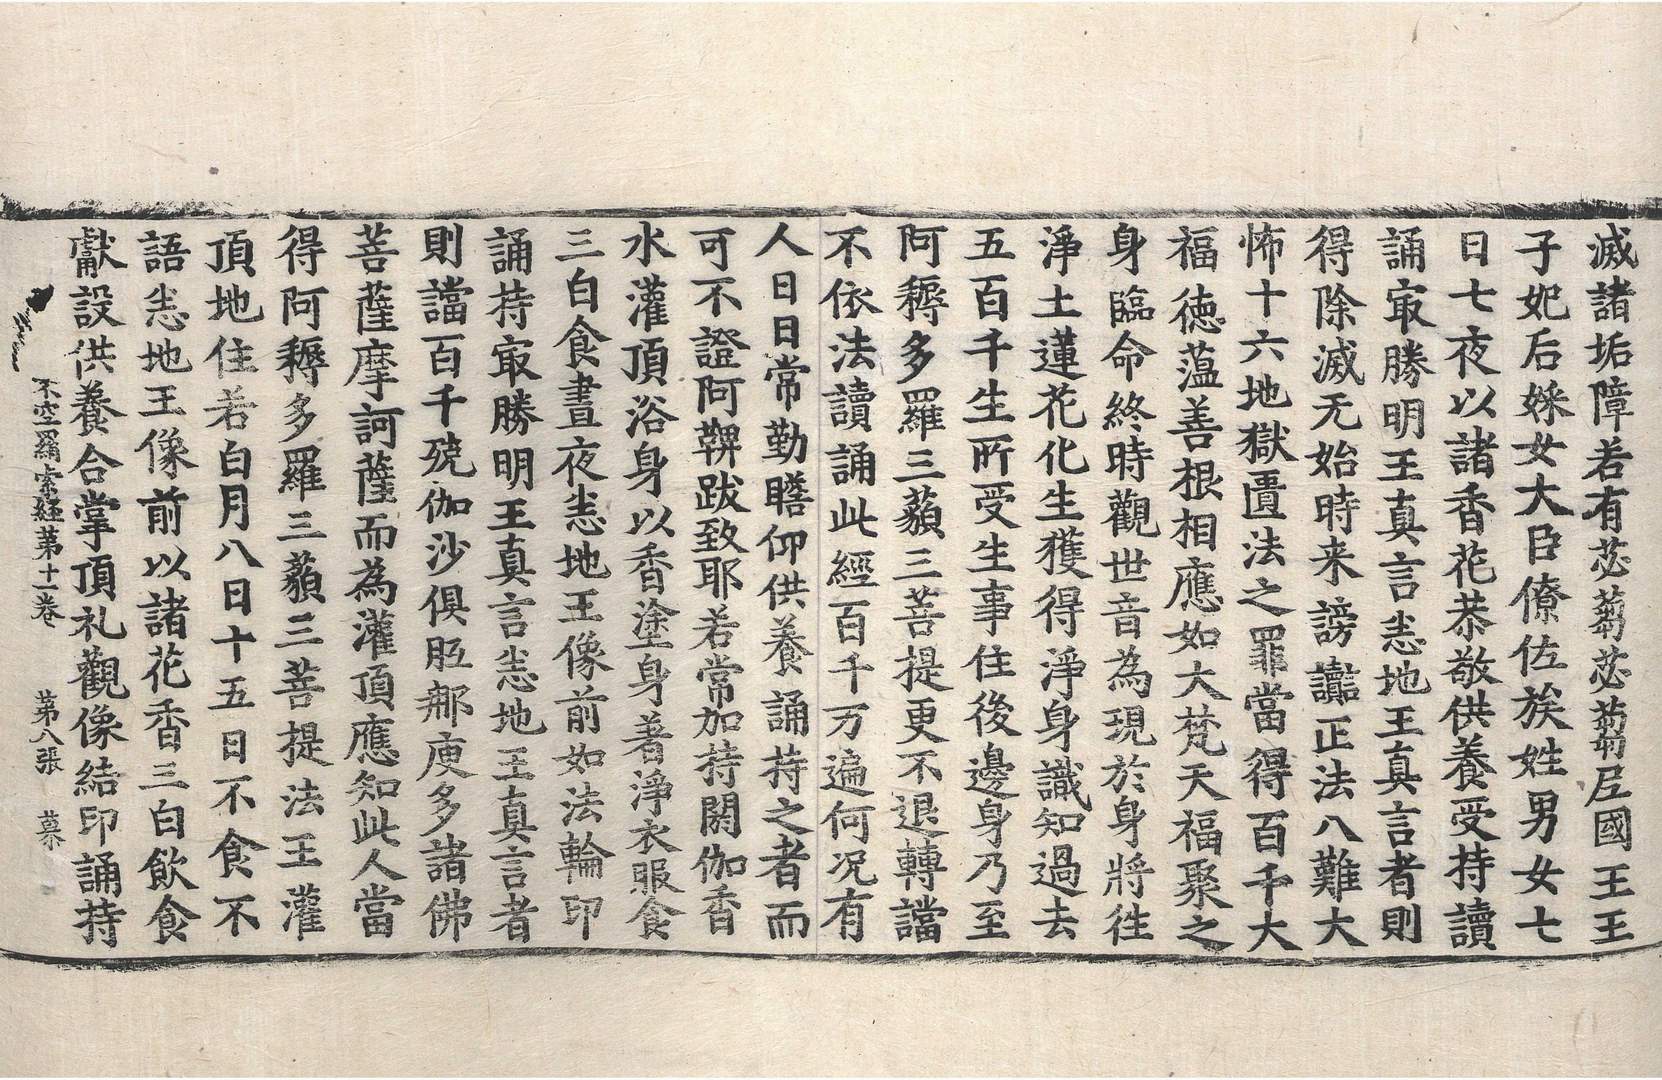 滅諸垢障若有苾蒭苾蒭尼國王王
子妃后婇女大臣僚佐族姓男女七
日七夜以諸香花恭敬供養受持讀
誦㝡勝明王真言恚地王真言者則
得除滅无始時来謗讟正法八難大
怖十六地獄匱法之罪當得百千大
福徳蕰善根相應如大梵天福聚之
身臨命終時觀世音為現於身將往
淨土蓮花化生獲得淨身識知過去
五百千生所受生事住後邊身乃至
阿耨多羅三藐三菩提更不退轉譡
不依法讀誦此經百千万遍何况有
人日日常勤瞻仰供養誦持之者而
可不證阿鞞跋致耶若常加持閼伽香
水灌頂浴身以香塗身著淨衣服食
三白食晝夜恚地王像前如法輪印
誦持㝡勝明王真言恚地王真言者
則譡百千殑伽沙俱胝那庾多諸佛
菩薩摩訶薩而為灌頂應知此人當
得阿耨多羅三藐三菩提法王灌
頂地住若白月八日十五日不食不
語恚地王像前以諸花香三白飲食
獻設供養合掌頂礼觀像結印誦持
不空羂索経第十一卷 第八張 慕